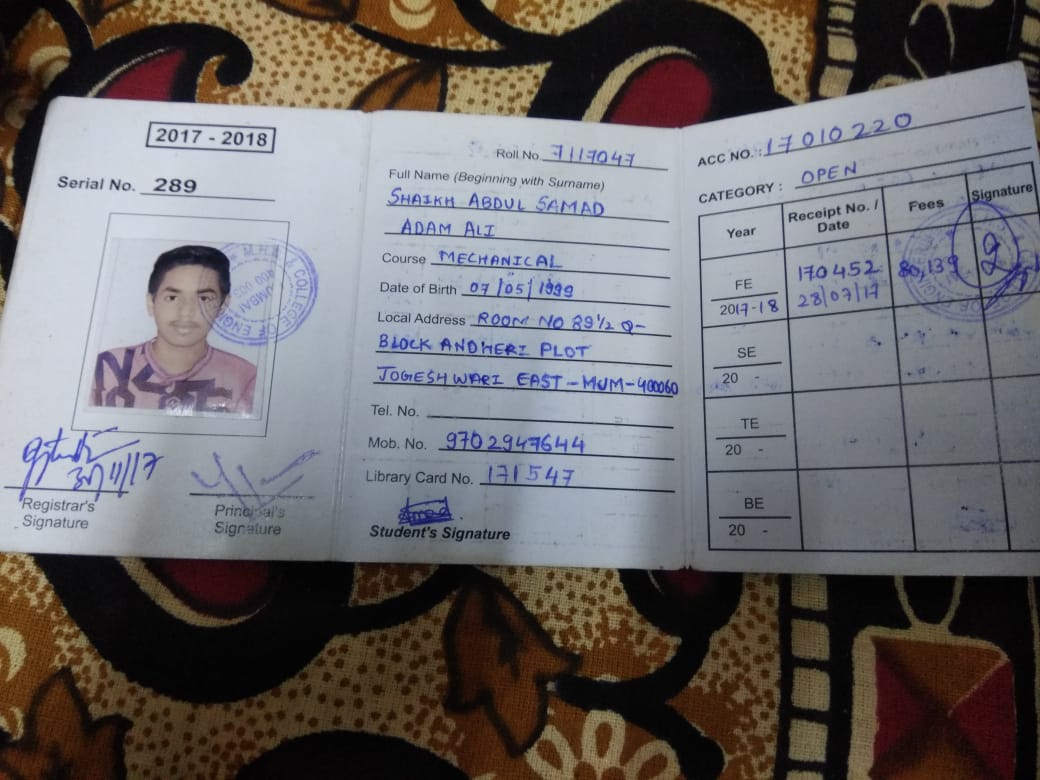 2017 - 2018
Serial No. 289
Registrar's
Signature
Principal's
Signature
30/11/17
Roll No. 7117047
Full Name (Beginning with Surname)
SHAIKH ABDUL SAMAD
ADAM ALI
Course MECHANICAL
Date of Birth 07/05/1999
Local Address ROOM NO 89½ Q-
BLOCK ANDHERI PLOT
JOGESHWARI EAST-MUM-400060
Tel. No.
Mob. No. 9702947644
Library Card No. 171547
Student's Signature
ACC NO.: 17010220
CATEGORY : OPEN
Year Receipt No. / Date Fees Signature
FE 170452 80,139
2017-18 28/07/17
SE
20 -
TE
20 -
BE
20 -